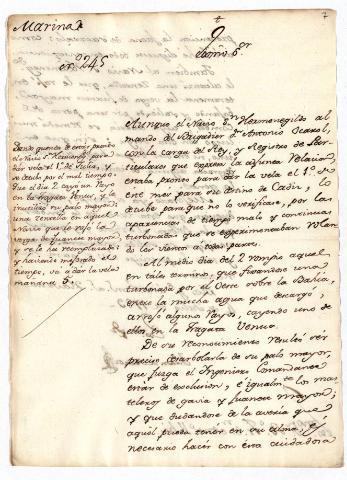 7
Marina
nº 245
Exmo. Sor.
Dando quenta de estar pronto
el Navio Sn Hermenegildo para
dar vela el 1º de Julio, y
no hecho por el mal tiempo: Que
que el dia 2 cayó un rayo
en la fragata Venus, y la
inutilizó su palo mayor;
una centella en aquel
Navio que le rifó la
verga de juanete mayor,
y se le ha reemplazado:
y haviendo mejorado el
tiempo, vá á dar la vela
mañana 5.
Aunque el Navio Sn Hermenegildo al
mando del Brigadier Dn Antonio
con la carga del Rey, y Registro de Par-
ticulares que expresa la adjunta Relacion,
estaba pronto para dar la vela el 1º de
este mes para su destino de Cadiz, lo
estube para que no lo verificase, por las
apariencias de tiempo malo y continuas
turbonadas que se experimentaban
do los vientos á todas partes.
Al medio dia del 2 rompió aquel
en tales terminos, que fixandose una
turbonada por el Oeste sobre la Bahia,
entre la mucha agua que descargó,
arrojó algunos Rayos, cayendo uno de
ellos en la fragata Venus.
De su reconocimiento resultó ser
preciso desarbolarla de su palo mayor,
que juzga el Ingeniero Comandante
estar de exclusion, é igualmte los mas-
teleros de gavia y juanete mayor;
y que dudandose de la averia que
aquel pueda tener en su alma, es
necesario hacer con esta cuidadosa